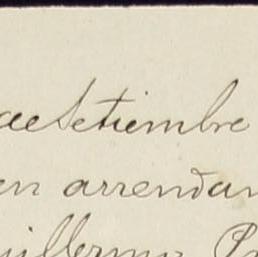 de Setiembre
en arrendam
uillermo P